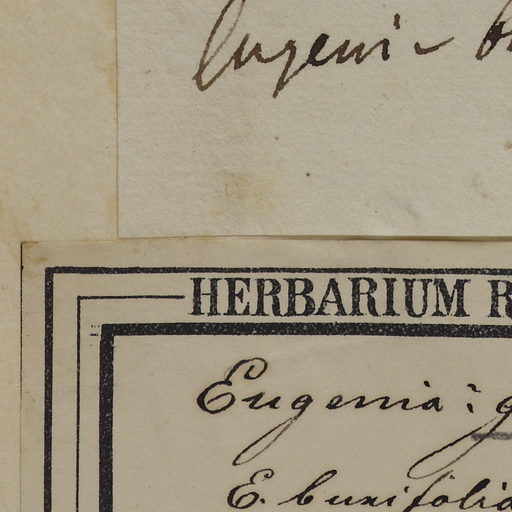 Eugenia
HERBARIUM R
Eugenia? g
E. buxifolia